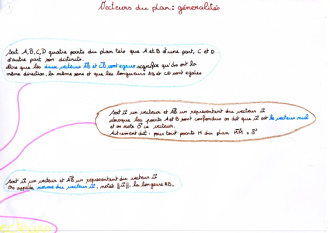 Vecteurs du plan : généralités
Soit A, B, C, D quatre points du plan tels que A et B d'une part, C et D
d'autre part son distincts.
Dire que les deux vecteurs AB et CD sont égaux signifie qu'ils ont la
même direction, le même sens et que les longueurs AB et CD sont égales
Soit u un vecteur et AB un représentant du vecteur u
Lorsque les points A et B sont confondus on dit que u est le vecteur nul
et on note 0 ce vecteur.
Autrement dit : pour tout points M du plan MM = 0
Soit u un vecteur et AB un représentant du vecteur u
On appelle norme du vecteur u, noté ||u||, la longueur AB.